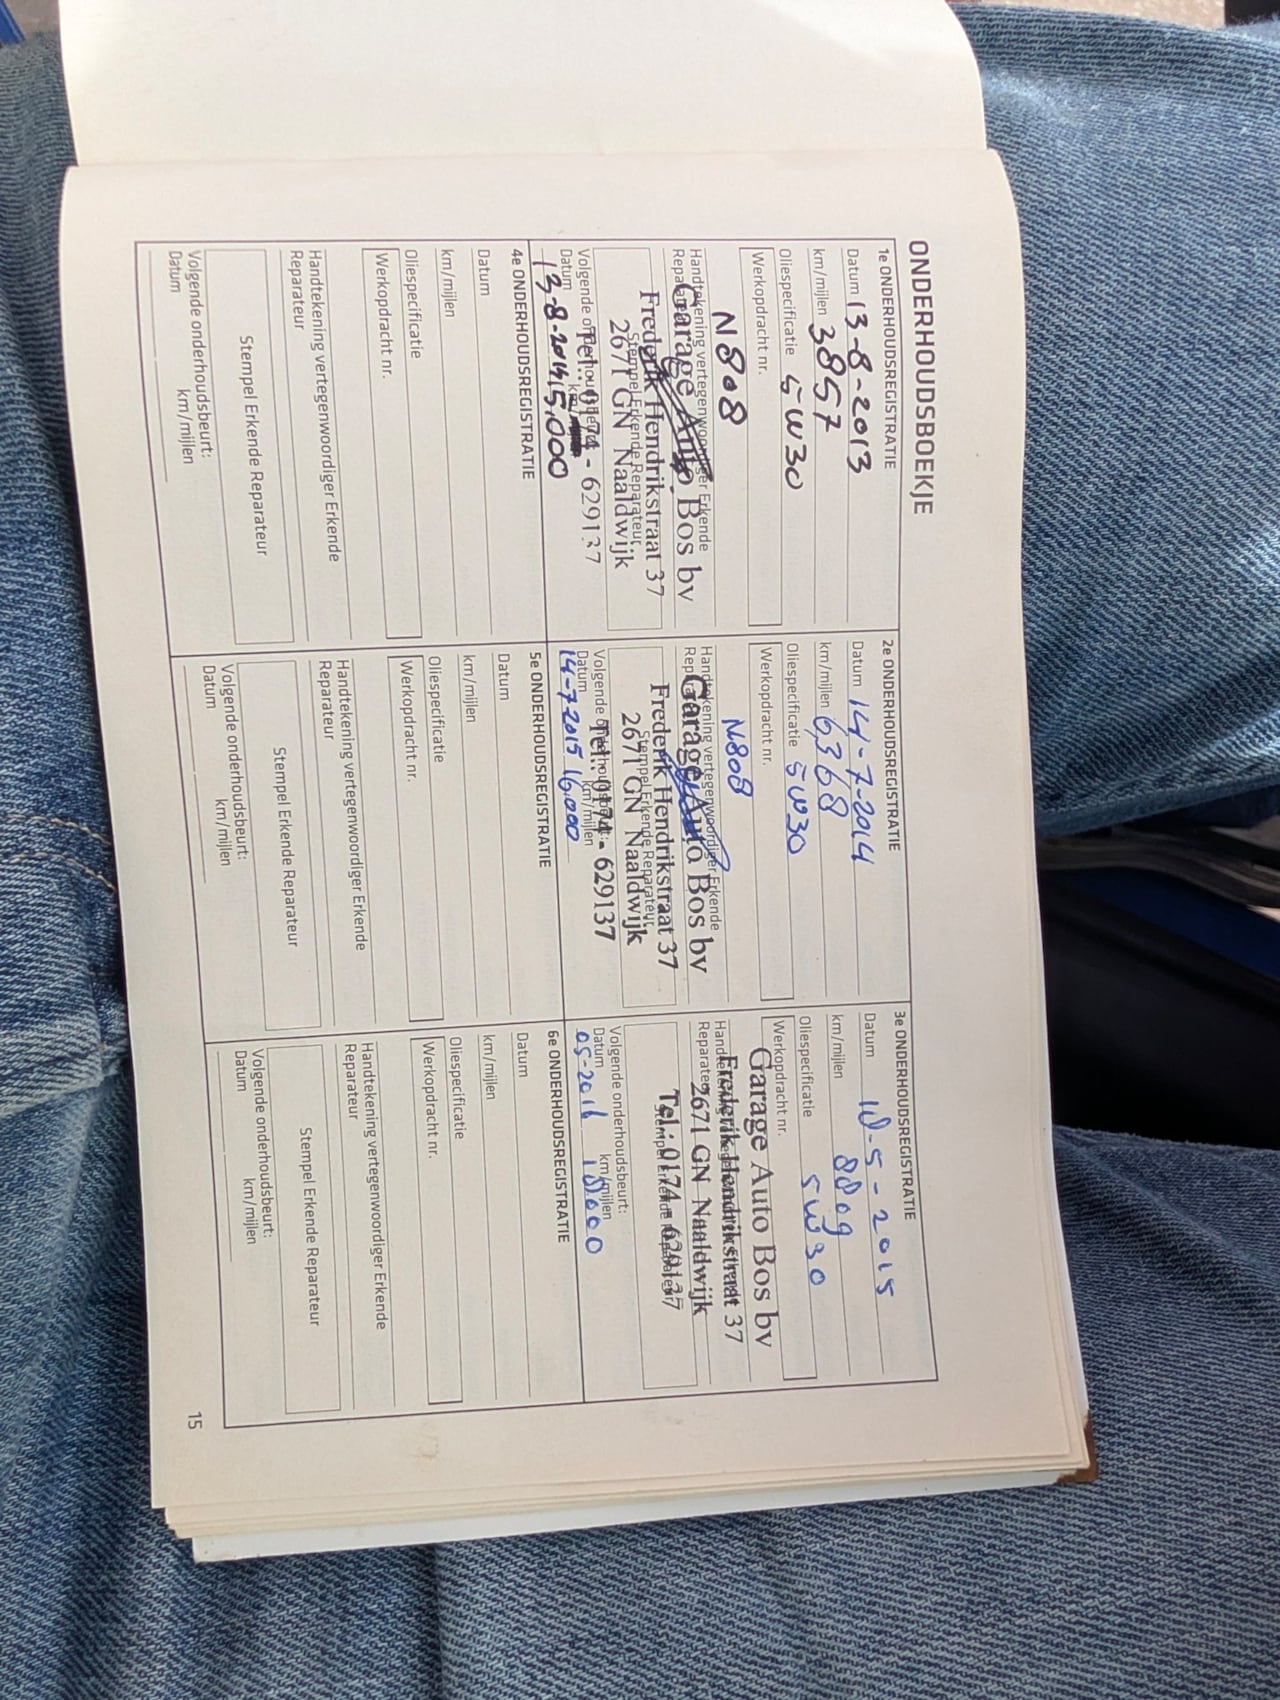 ONDERHOUDSBOEKJE
1e ONDERHOUDSREGISTRATIE
Datum 13-8-2013
km/mijlen 3857
Oliespecificatie 5W30
Werkopdracht nr.
N808
Handtekening vertegenwoordiger Erkende
Reparateur
Garage Auto Bos bv
Frederik Hendrikstraat 37
Stempel Erkende Reparateur
2671 GN Naaldwijk
Tel.: 0174 - 629137
Volgende onderhoudsbeurt:
Datum km/mijlen
13-8-2014 15.000
2e ONDERHOUDSREGISTRATIE
Datum 14-7-2014
km/mijlen 6368
Oliespecificatie 5W30
Werkopdracht nr.
N808
Handtekening vertegenwoordiger Erkende
Reparateur
Garage Auto Bos bv
Frederik Hendrikstraat 37
Stempel Erkende Reparateur
2671 GN Naaldwijk
Tel.: 0174 - 629137
Volgende onderhoudsbeurt:
Datum km/mijlen
14-7-2015 16.000
3e ONDERHOUDSREGISTRATIE
Datum 18-5-2015
km/mijlen 8809
Oliespecificatie 5W30
Werkopdracht nr.
Garage Auto Bos bv
Frederik Hendrikstraat 37
Handtekening vertegenwoordiger Erkende
Reparateur
2671 GN Naaldwijk
Tel.: 0174 - 629137
Stempel Erkende Reparateur
Volgende onderhoudsbeurt:
Datum km/mijlen
05-2016 18000
4e ONDERHOUDSREGISTRATIE
Datum
km/mijlen
Oliespecificatie
Werkopdracht nr.
Handtekening vertegenwoordiger Erkende
Reparateur
Stempel Erkende Reparateur
Volgende onderhoudsbeurt:
Datum km/mijlen
5e ONDERHOUDSREGISTRATIE
Datum
km/mijlen
Oliespecificatie
Werkopdracht nr.
Handtekening vertegenwoordiger Erkende
Reparateur
Stempel Erkende Reparateur
Volgende onderhoudsbeurt:
Datum km/mijlen
6e ONDERHOUDSREGISTRATIE
Datum
km/mijlen
Oliespecificatie
Werkopdracht nr.
Handtekening vertegenwoordiger Erkende
Reparateur
Stempel Erkende Reparateur
Volgende onderhoudsbeurt:
Datum km/mijlen
15